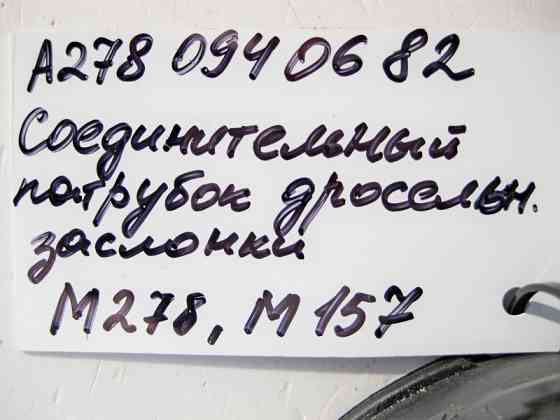 А278 094 06 82
Соединительный
патрубок дросельн.
заслонки
М278, М157